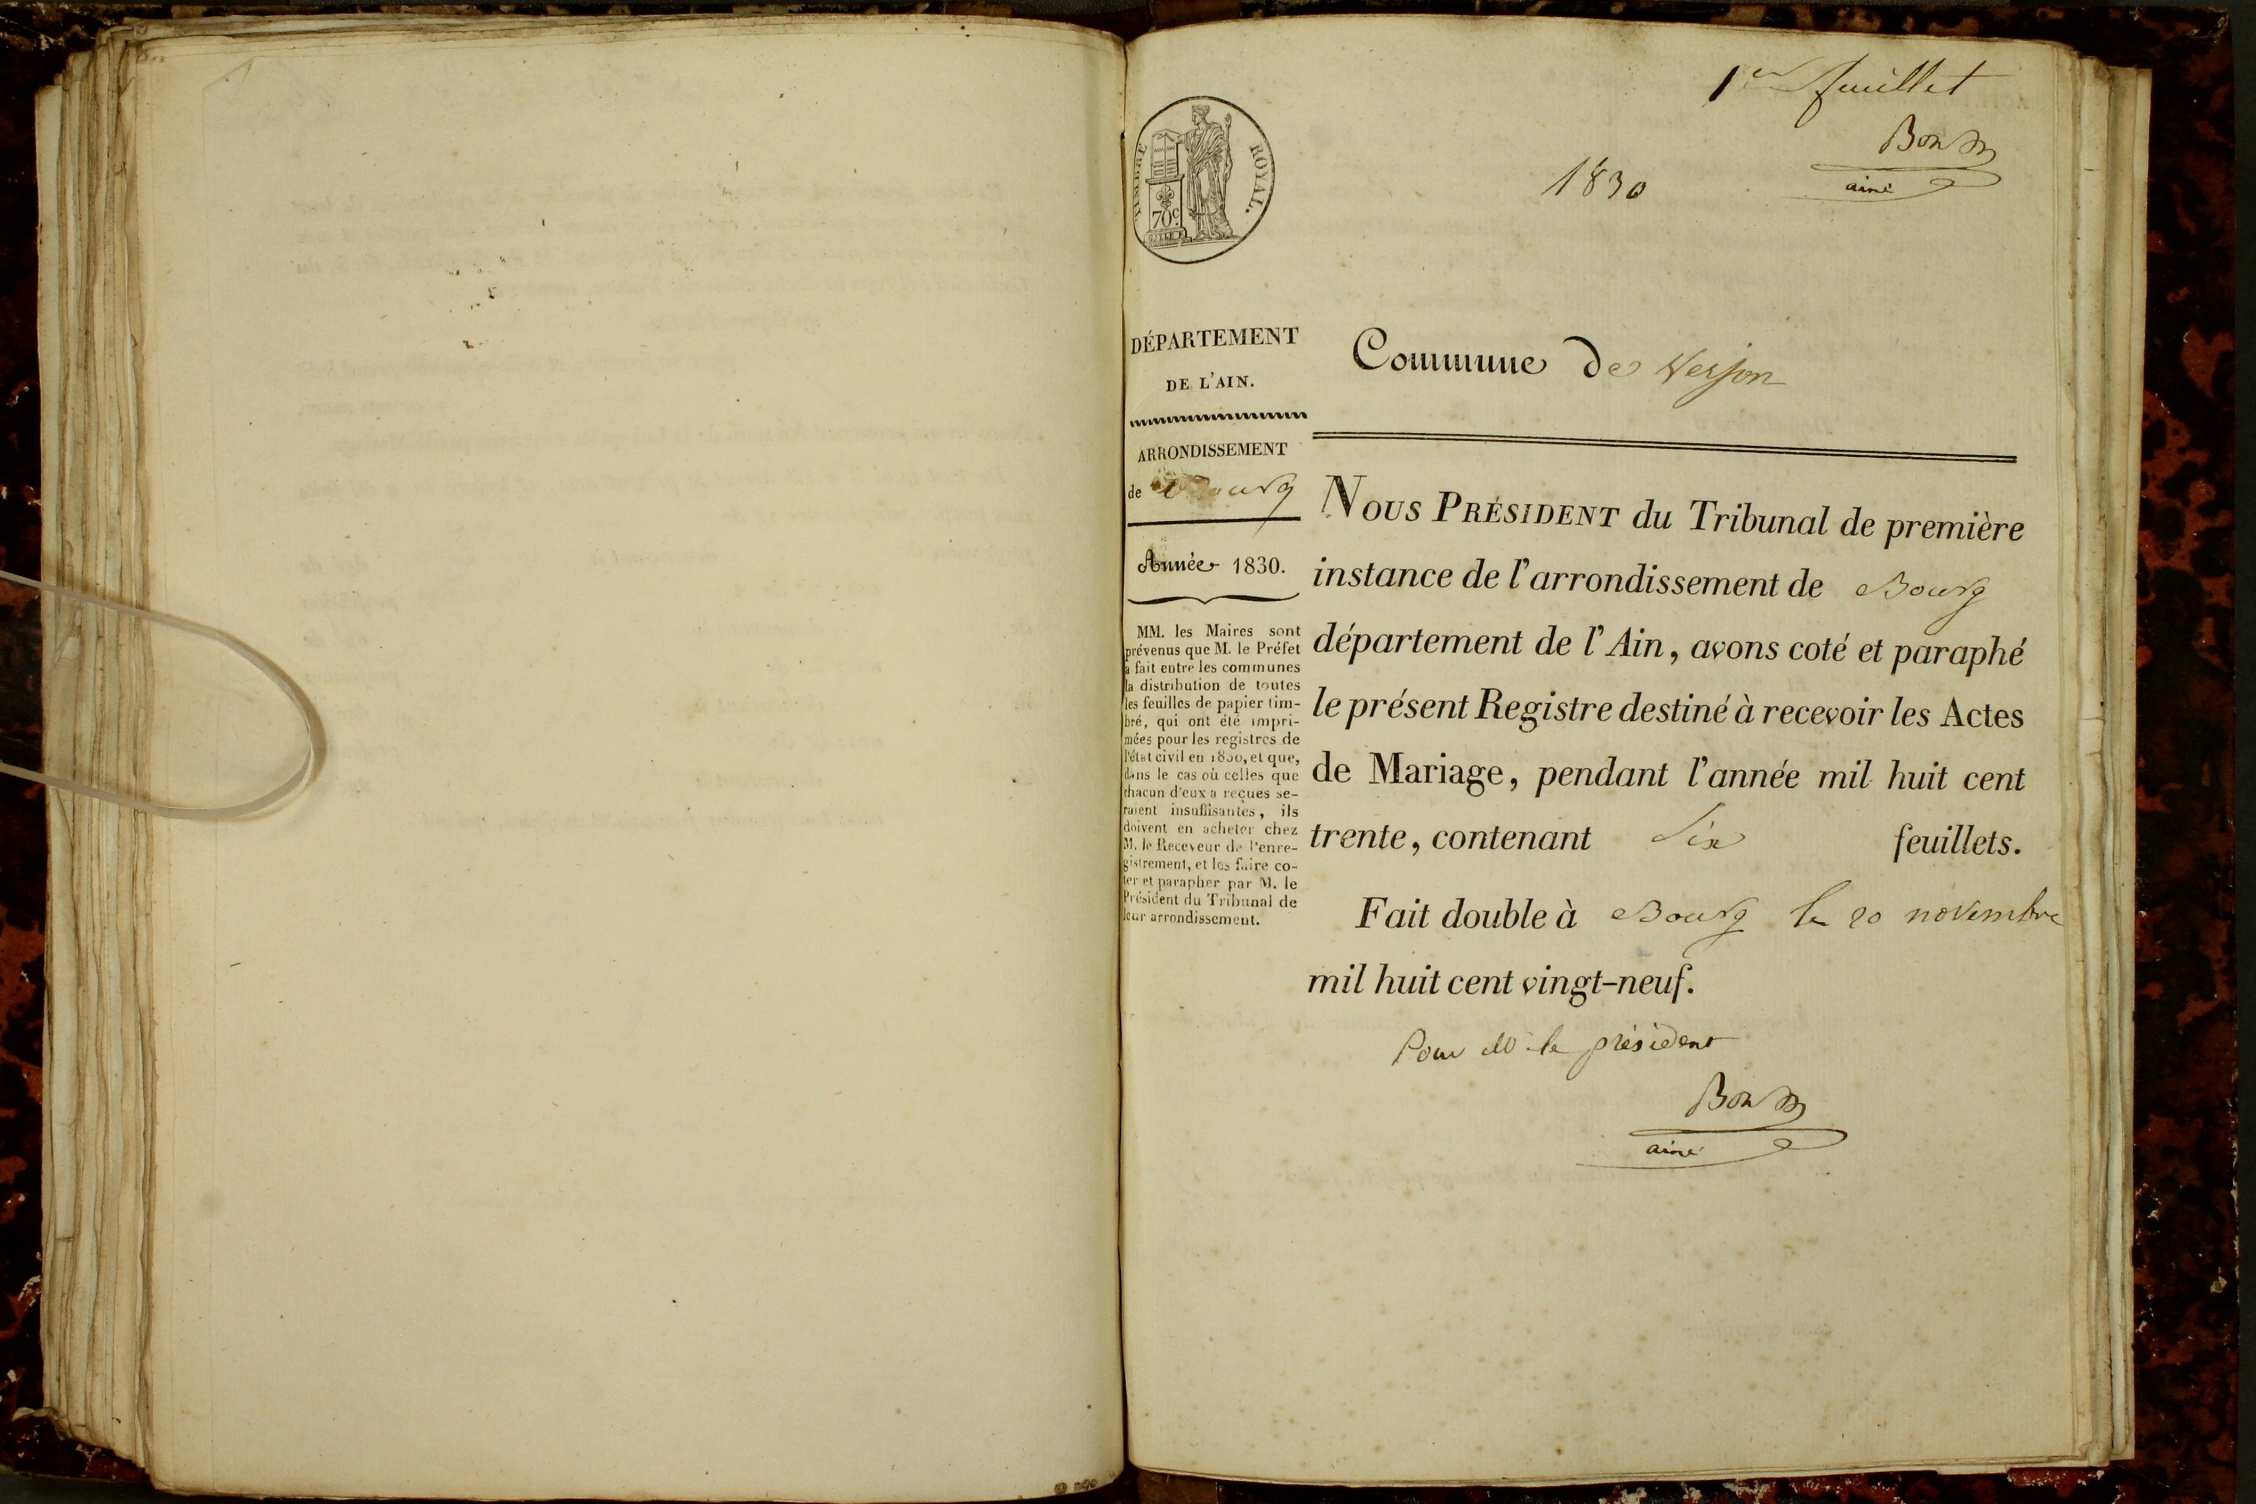 1er feuillet
Bon
ainé
1830
TIMBRE ROYAL.
70c
DÉPARTEMENT
DE L'AIN.
ARRONDISSEMENT
de Bourg
Année 1830.
MM. les Maires sont
prévenus que M. le Préfet
a fait entre les communes
la distribution de toutes
les feuilles de papier tim-
bré, qui ont été impri-
mées pour les registres de
l'état civil en 1830, et que,
dans le cas où celles que
chacun d'eux a reçues se-
raient insuffisantes, ils
doivent en acheter chez
M. le Receveur de l'enre-
gistrement, et les faire co-
ter et parapher par M. le
Président du Tribunal de
leur arrondissement.
Commune de Verjon
NOUS PRÉSIDENT du Tribunal de première
instance de l'arrondissement de Bourg
département de l'Ain, avons coté et paraphé
le présent Registre destiné à recevoir les Actes
de Mariage, pendant l'année mil huit cent
trente, contenant Six feuillets.
Fait double à Bourg le 20 novembre
mil huit cent vingt-neuf.
Pour M le président
Bon
ainé